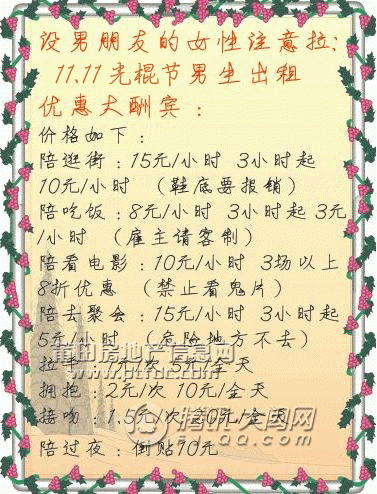 没男朋友的女性注意拉;
11.11光棍节男生出租
优惠大酬宾：
价格如下：
陪逛街：15元/小时 3小时起
10元/小时 （鞋底要报销）
陪吃饭：8元/小时 3小时起 3元
/小时 （雇主请客制）
陪看电影：10元/小时 3场以上
8折优惠 （禁止看鬼片）
陪去聚会：15元/小时 3小时起
5元/小时 （危险地方不去）
拉手：1元/次 5元/全天
拥抱：2元/次 10元/全天
接吻：1.5元/次 20元/全天
陪过夜：倒贴10元
莆田房地产信息网
腾讯大闽网